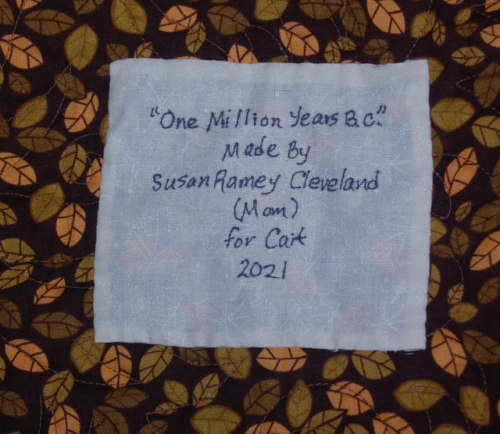 "One Million Years B.C."
Made By
Susan Ramey Cleveland
(Mom)
for Cait
2021